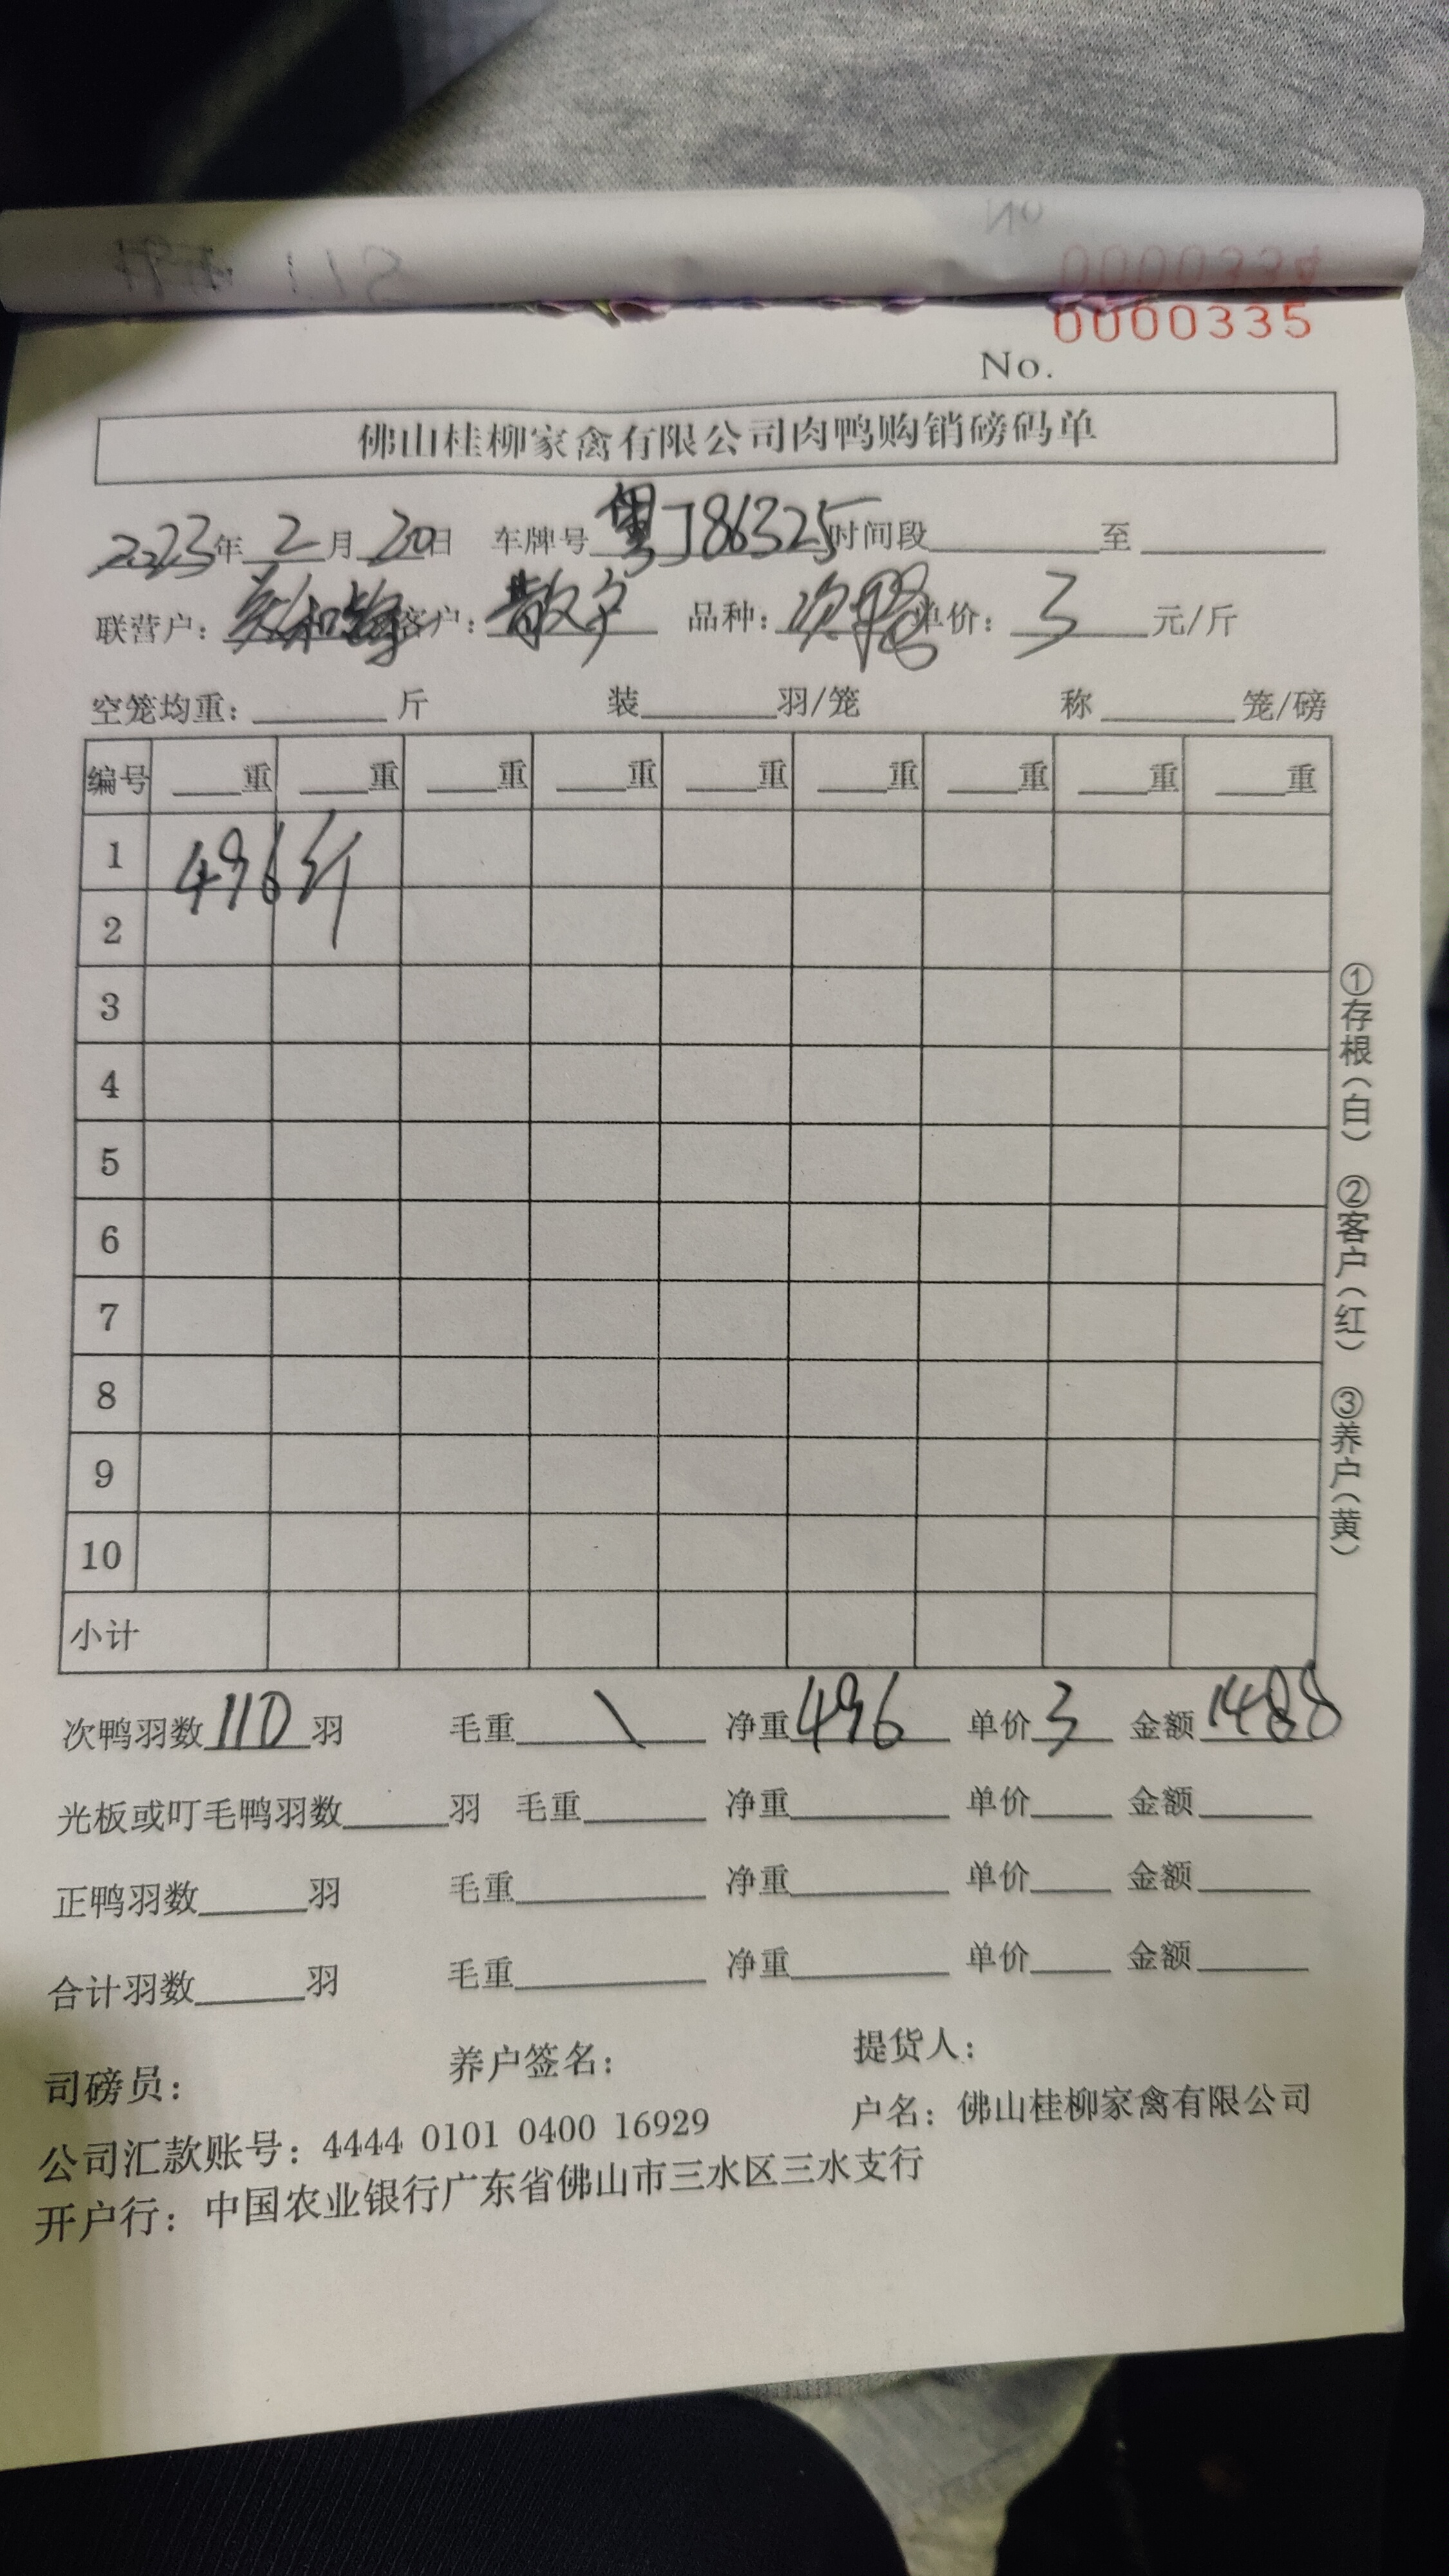 0000335
No.
佛山桂柳家禽有限公司肉鸭购销磅码单
2023年2月20日 车牌号 粤J86325 时间段 至
联营户： 客户：散户 品种：次鸭 单价：3元/斤
空笼均重： 斤 装 羽/笼 称 笼/磅
编号 重 重 重 重 重 重 重 重 重
1 496斤
2
3
4
5
6
7
8
9
10
小计
①存根（白） ②客户（红） ③养户（黄）
次鸭羽数110羽 毛重\ 净重496 单价3 金额1488
光板或叮毛鸭羽数 羽 毛重 净重 单价 金额
正鸭羽数 羽 毛重 净重 单价 金额
合计羽数 羽 毛重 净重 单价 金额
司磅员： 养户签名： 提货人：
公司汇款账号：4444 0101 0400 16929 户名：佛山桂柳家禽有限公司
开户行：中国农业银行广东省佛山市三水区三水支行